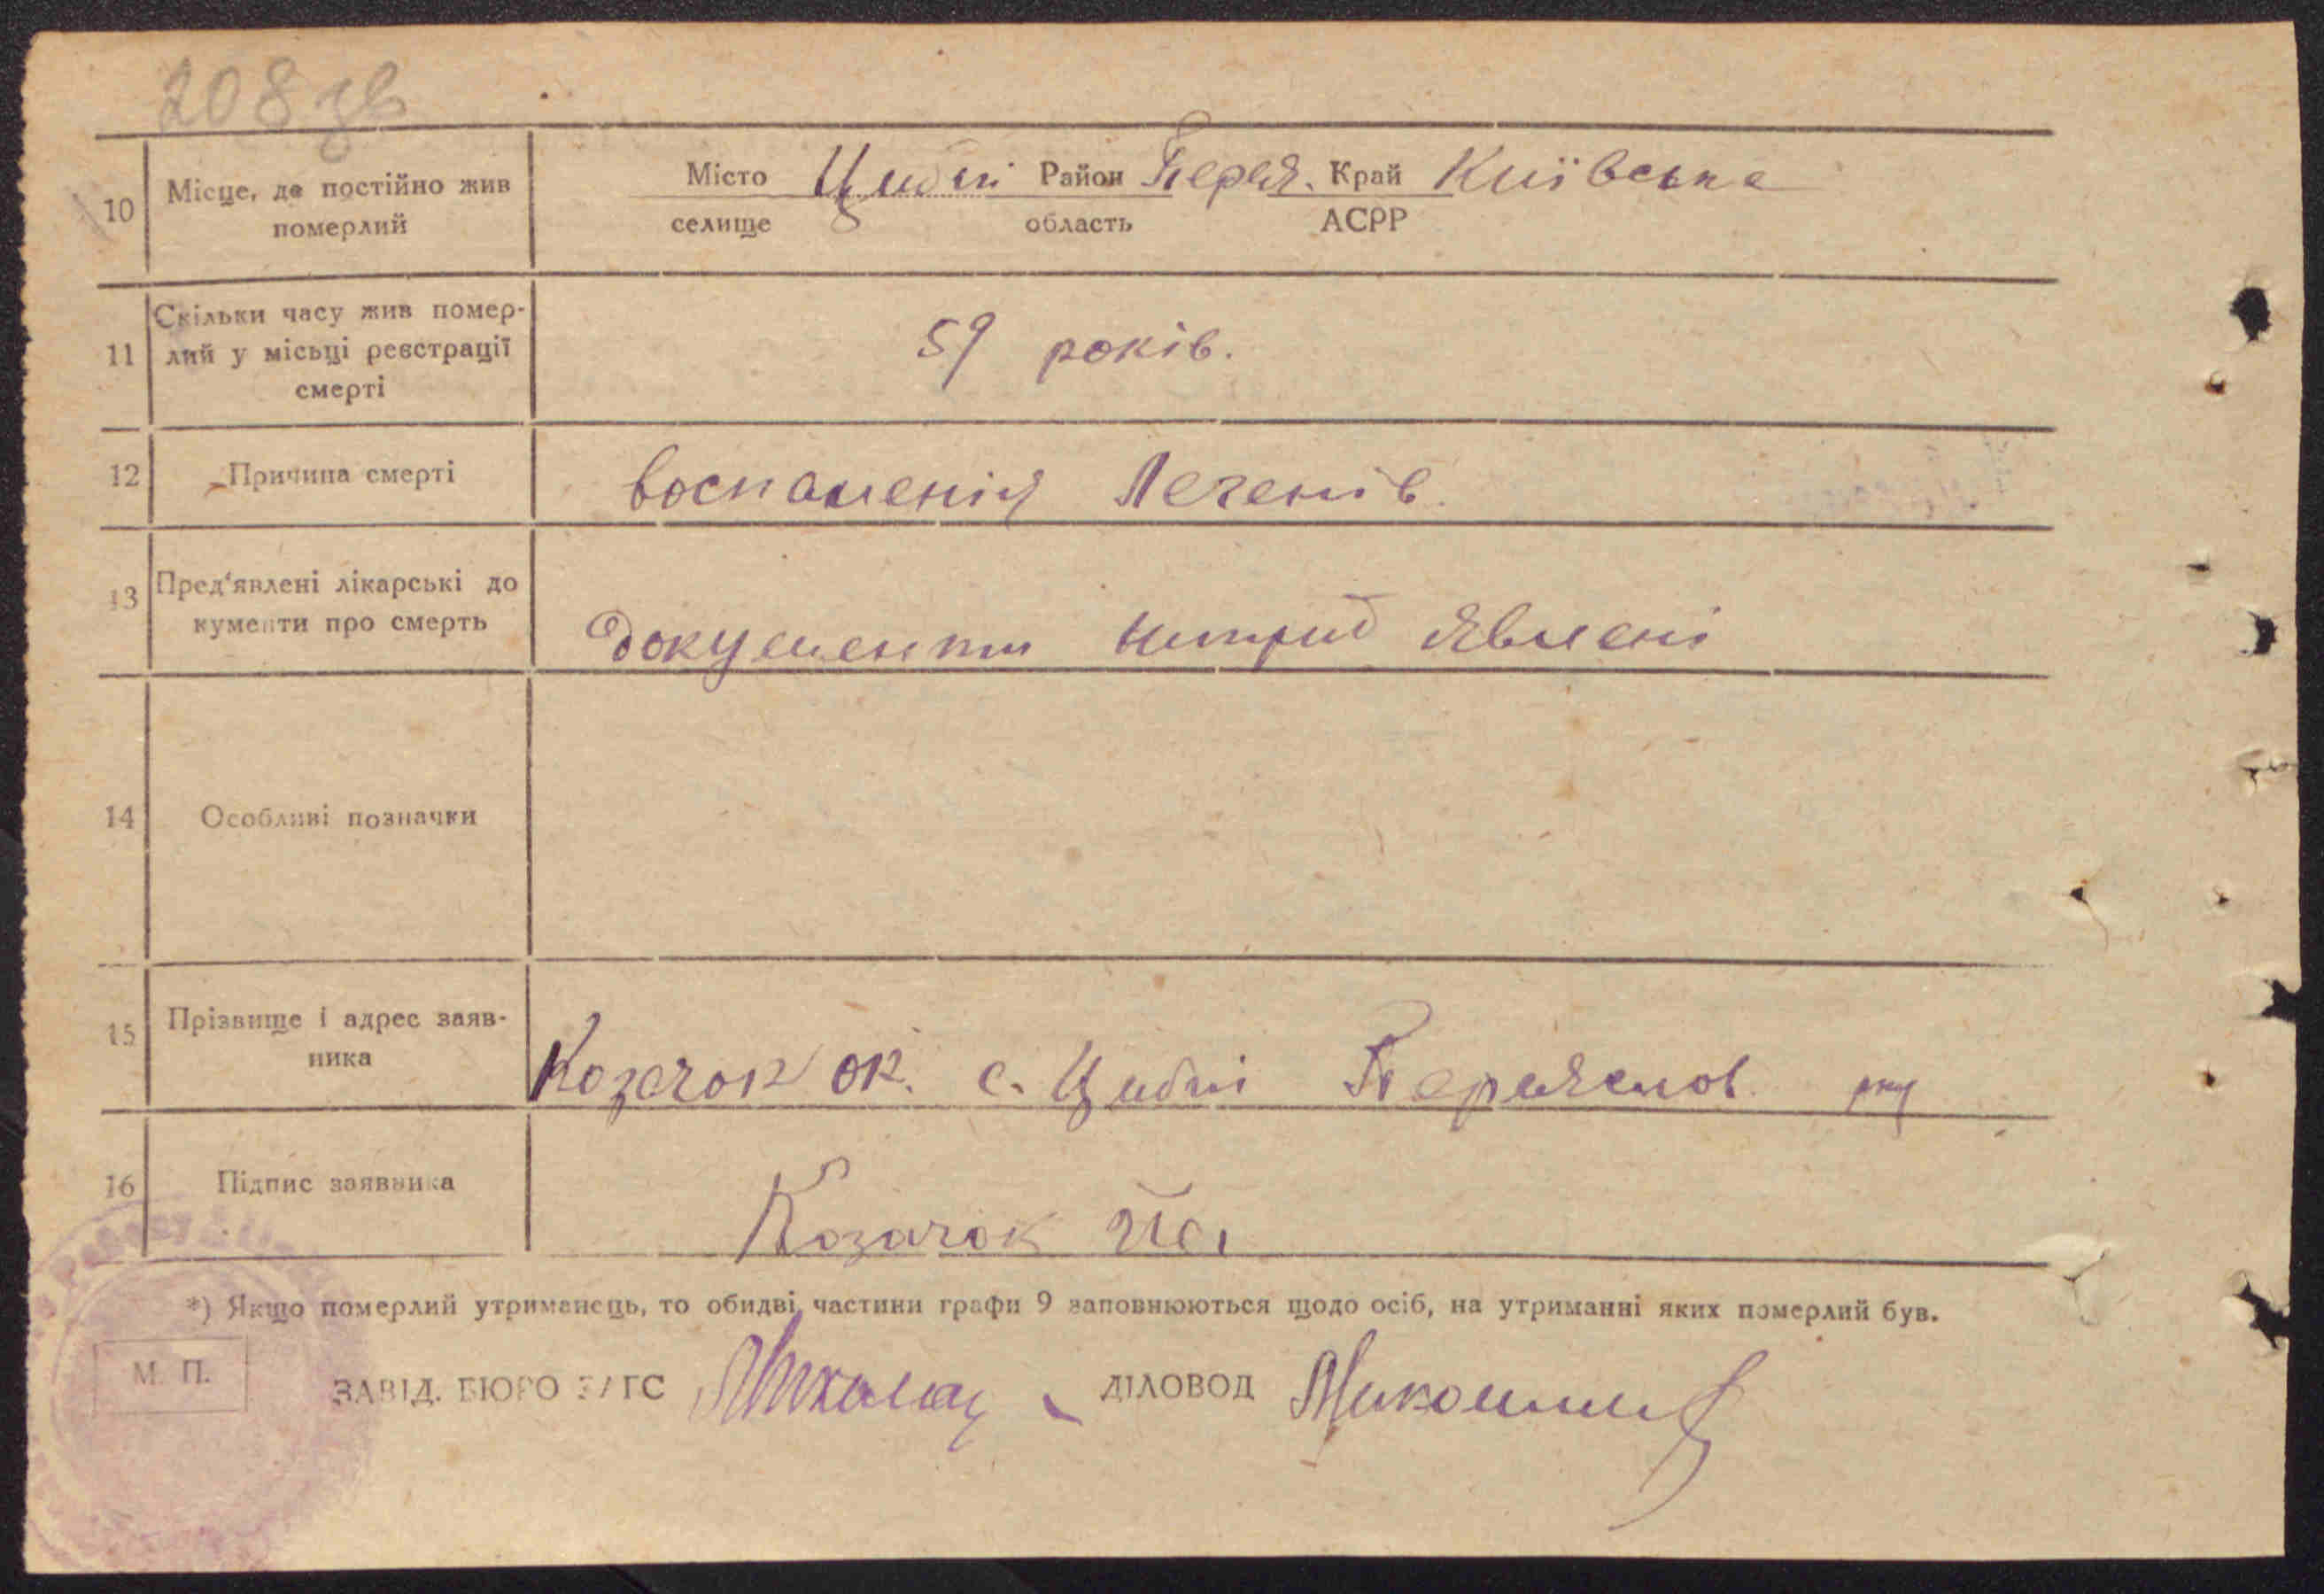 208 зв
10
Місце, де постійно жив
померлий
Місто Циблі Район Переяс. Край Київська
селище область АСРР
11
Скільки часу жив помер-
лий у місьці реєстрації
смерті
59 років.
12
Причина смерті
воспаленія Легенів.
13
Пред'явлені лікарські до
кументи про смерть
документи явлені
14
Особливі позначки
15
Прізвище і адрес заяв-
ника
Козачок ок. с. Циблі
16
Підпис заявника
Козачок
*) Якщо померлий утриманець, то обидві частини графи 9 заповнюються щодо осіб, на утриманні яких померлий був.
М. П.
ЗАВІД. БЮРО ЗАГС
ДІЛОВОД